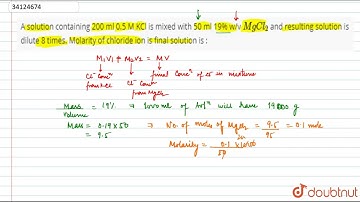 34124674
A solution containing 200 ml 0.5 M KCl is mixed with 50 ml 19% w/v MgCl2 and resulting solution is
dilute 8 times. Molarity of chloride ion is final solution is :
M1V1 + M2V2 = MV
Cl- concn from KCl
Cl- concn from MgCl2
final concn of Cl- in mixture
Mass / Volume = 19% ⇒ 1000 ml of soln will have 19000 g
Mass = 0.19 × 50 ⇒ No. of moles of MgCl2 = 9.5 / 95 = 0.1 mole
= 9.5
Molarity = 0.1 × 1000 / 50
doubtnut